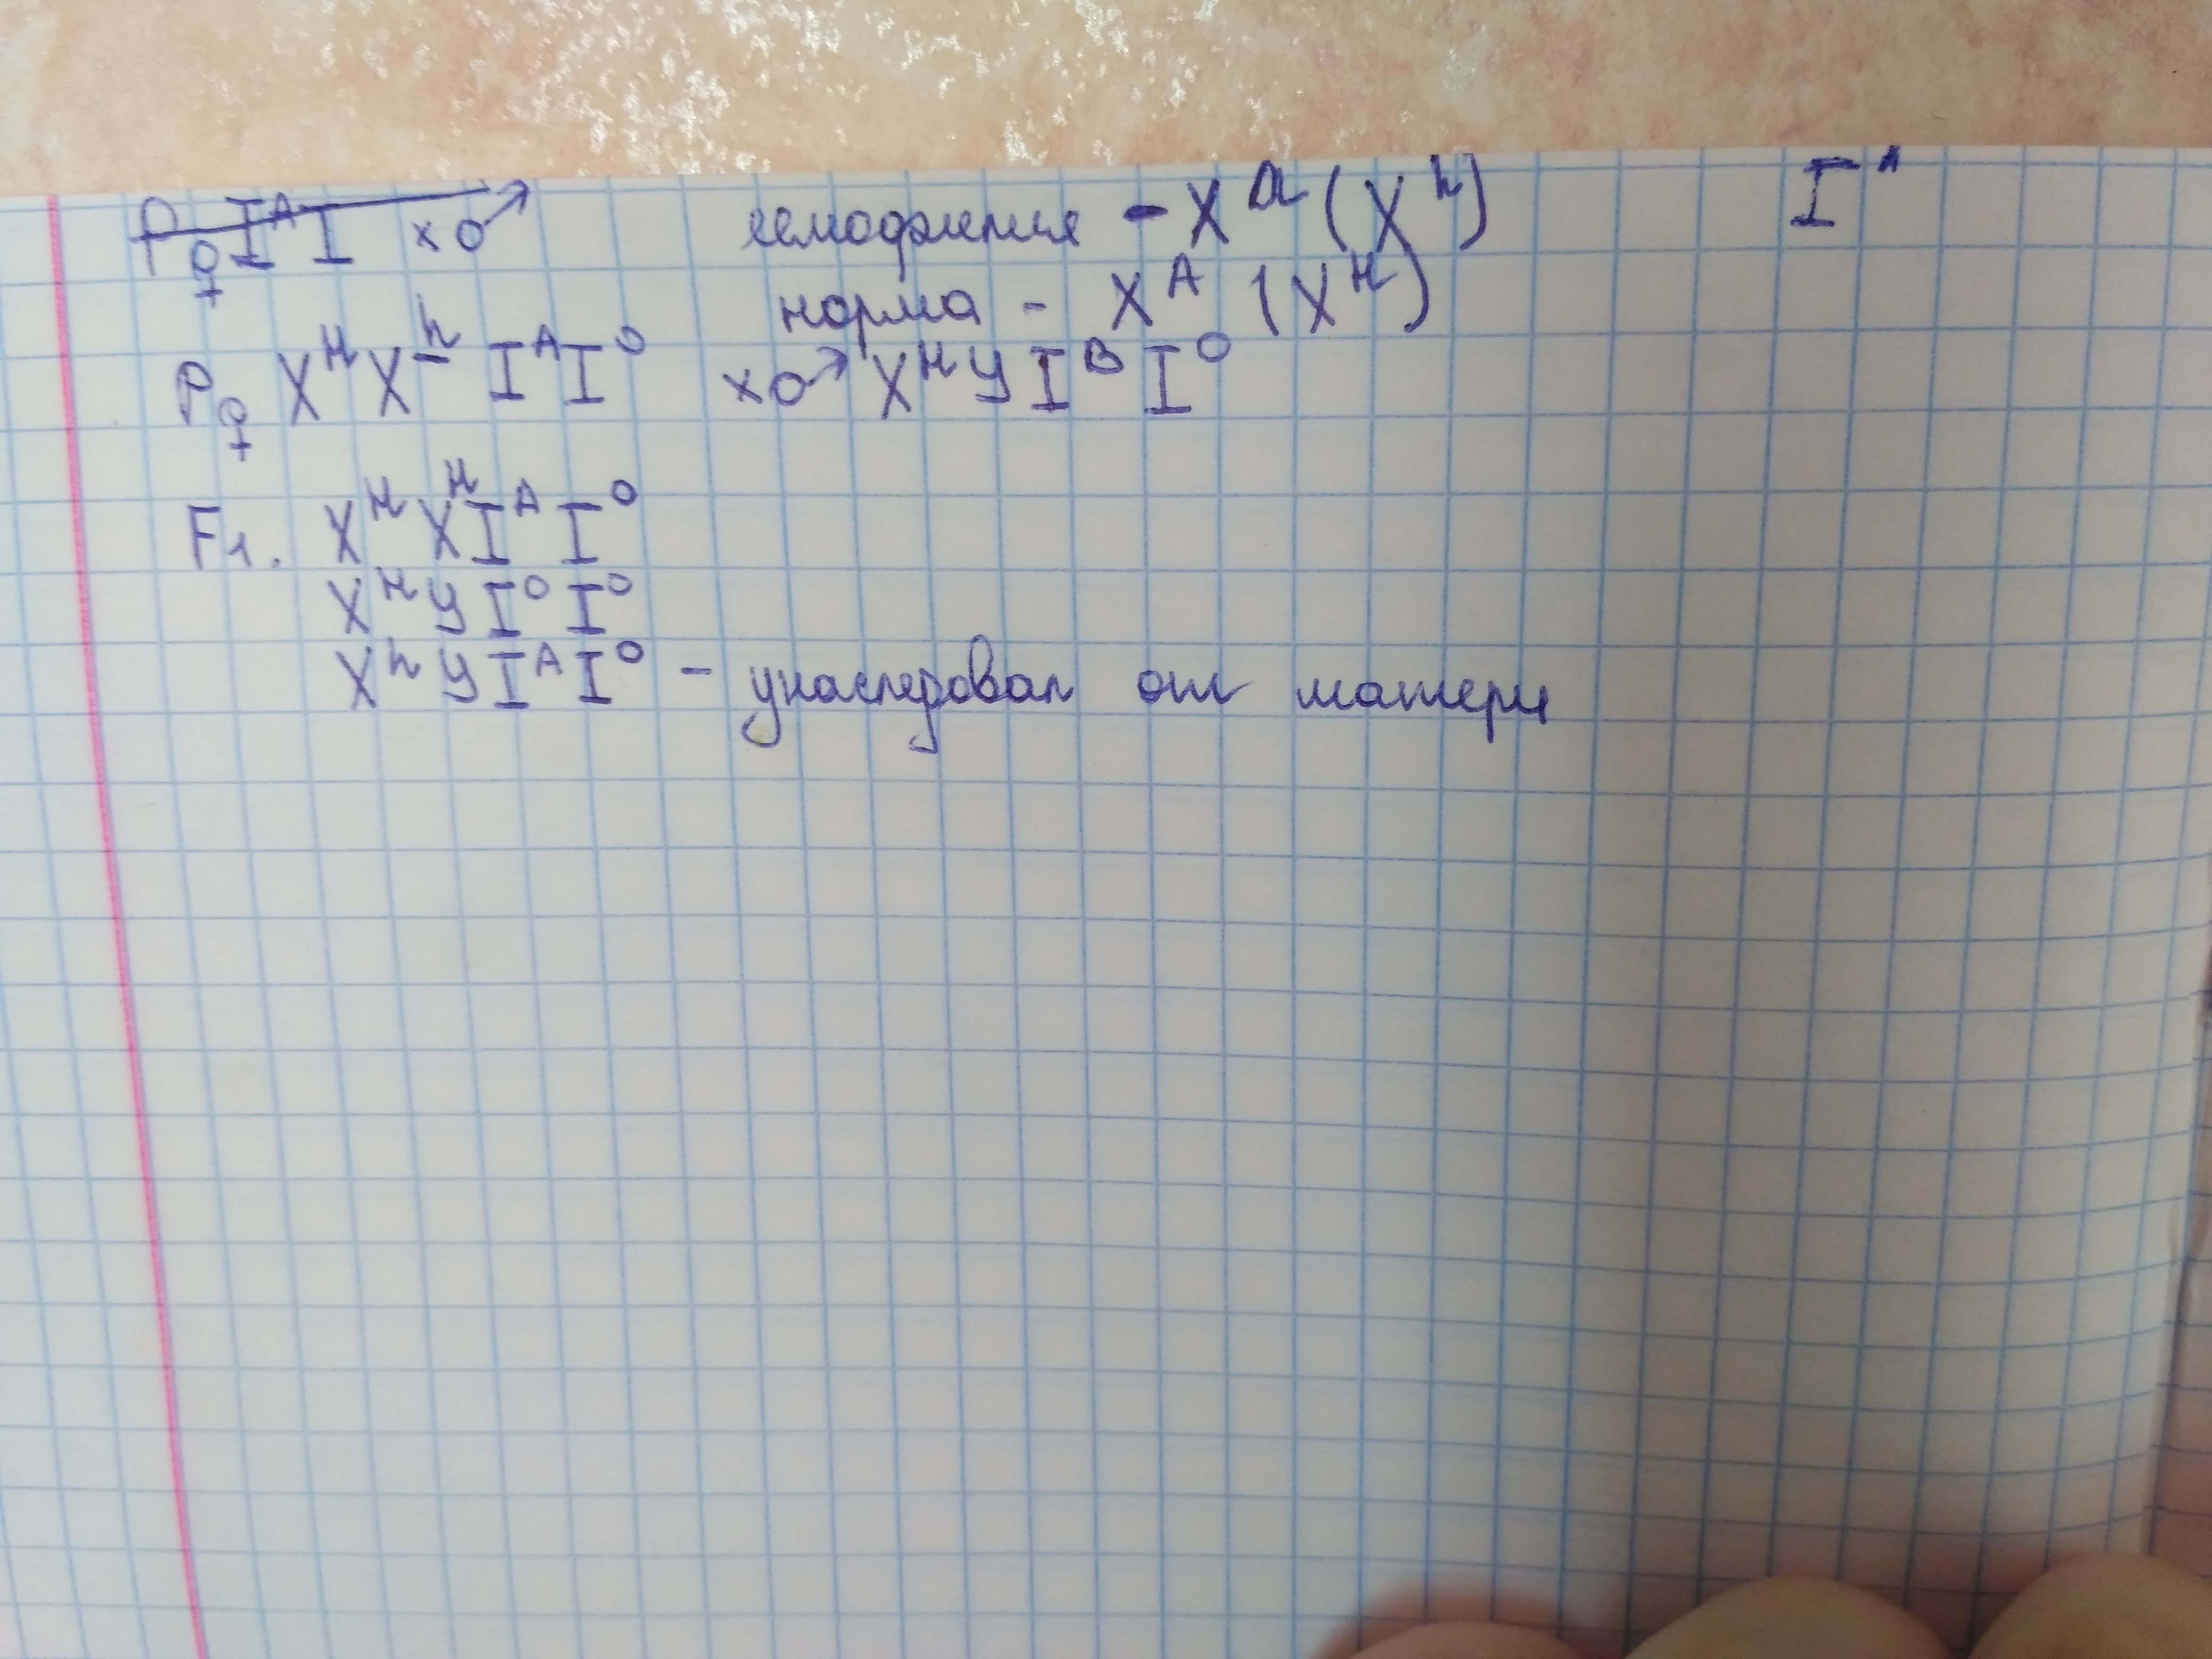 P ♀ I^A I × ♂
гемофилия - X^a (X^h)
I^A
норма - X^A (X^H)
P ♀ X^H X^h I^A I^O × ♂ X^H У I^B I^O
F1. X^H X^H I^A I^O
X^H У I^O I^O
X^h У I^A I^O - унаследовал от матери